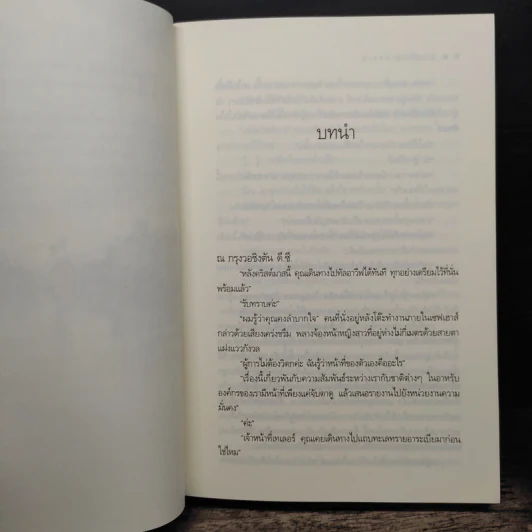 บทนำ
ณ กรุงวอชิงตัน ดี.ซี.
"หลังคริสต์มาสนี้ คุณเดินทางไปทัลอาวีฟได้ทันที ทุกอย่างเตรียมไว้ที่นั่น
พร้อมแล้ว"
"รับทราบค่ะ"
"ผมรู้ว่าคุณคงลำบากใจ" คนที่นั่งอยู่หลังโต๊ะทำงานภายในเซฟเฮาส์
กล่าวด้วยเสียงเคร่งขรึม พลางจ้องหน้าหญิงสาวที่อยู่ห่างไม่กี่เมตรด้วยสายตา
แฝงแววกังวล
"ผู้การไม่ต้องวิตกค่ะ ฉันรู้ว่าหน้าที่ของตัวเองคืออะไร"
"เรื่องนี้เกี่ยวพันกับความสัมพันธ์ระหว่างเรากับชาติต่างๆ ในอาหรับ
องค์กรของเรามีหน้าที่เพียงแค่จับตาดู แล้วเสนอรายงานไปยังหน่วยงานความ
มั่นคง"
"ค่ะ"
"เจ้าหน้าที่เทเลอร์ คุณเคยเดินทางไปแถบทะเลทรายอาระเบียมาก่อน
ใช่ไหม"